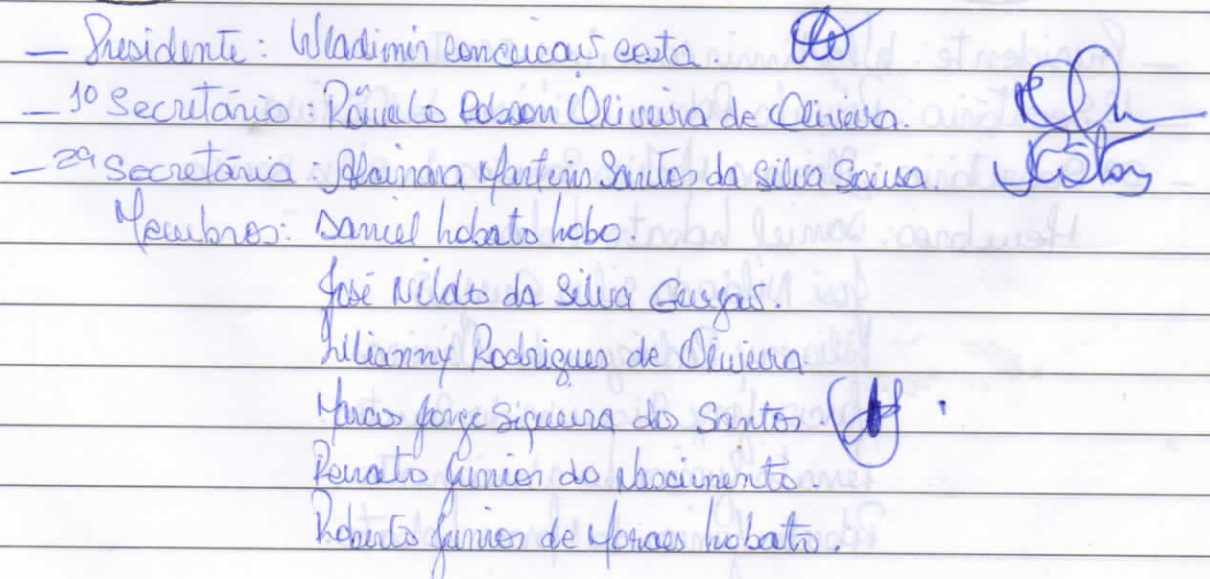 — Presidente: Wladimir Conceicaos costa.
— 1º Secretário: Rômulo Edson Oliveira de Oliveira.
— 2ª Secretária: Martins Santos da Silva Sousa.
Membros: Daniel Lobato Lobo.
José Nildo da Silva Gurgas.
Lilianny Rodrigues de Oliveira
Marcos Jorge Siqueira dos Santos.
Renato Junior do Nascimento.
Roberto Junior de Moraes Lobato.